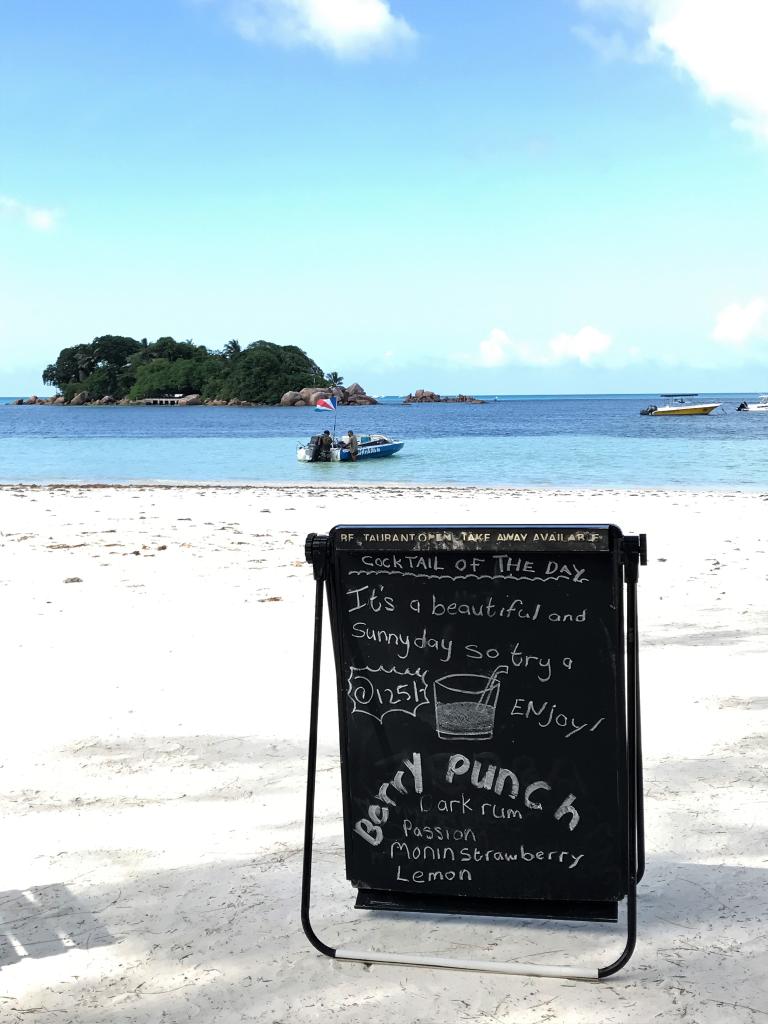 RE TAURANT OPEN TAKE AWAY AVAILABLE
COCKTAIL OF THE DAY
It's a beautiful and
Sunny day so try a
@125/-
ENjoy!
Berry punch
Dark rum
Passion
Monin strawberry
Lemon